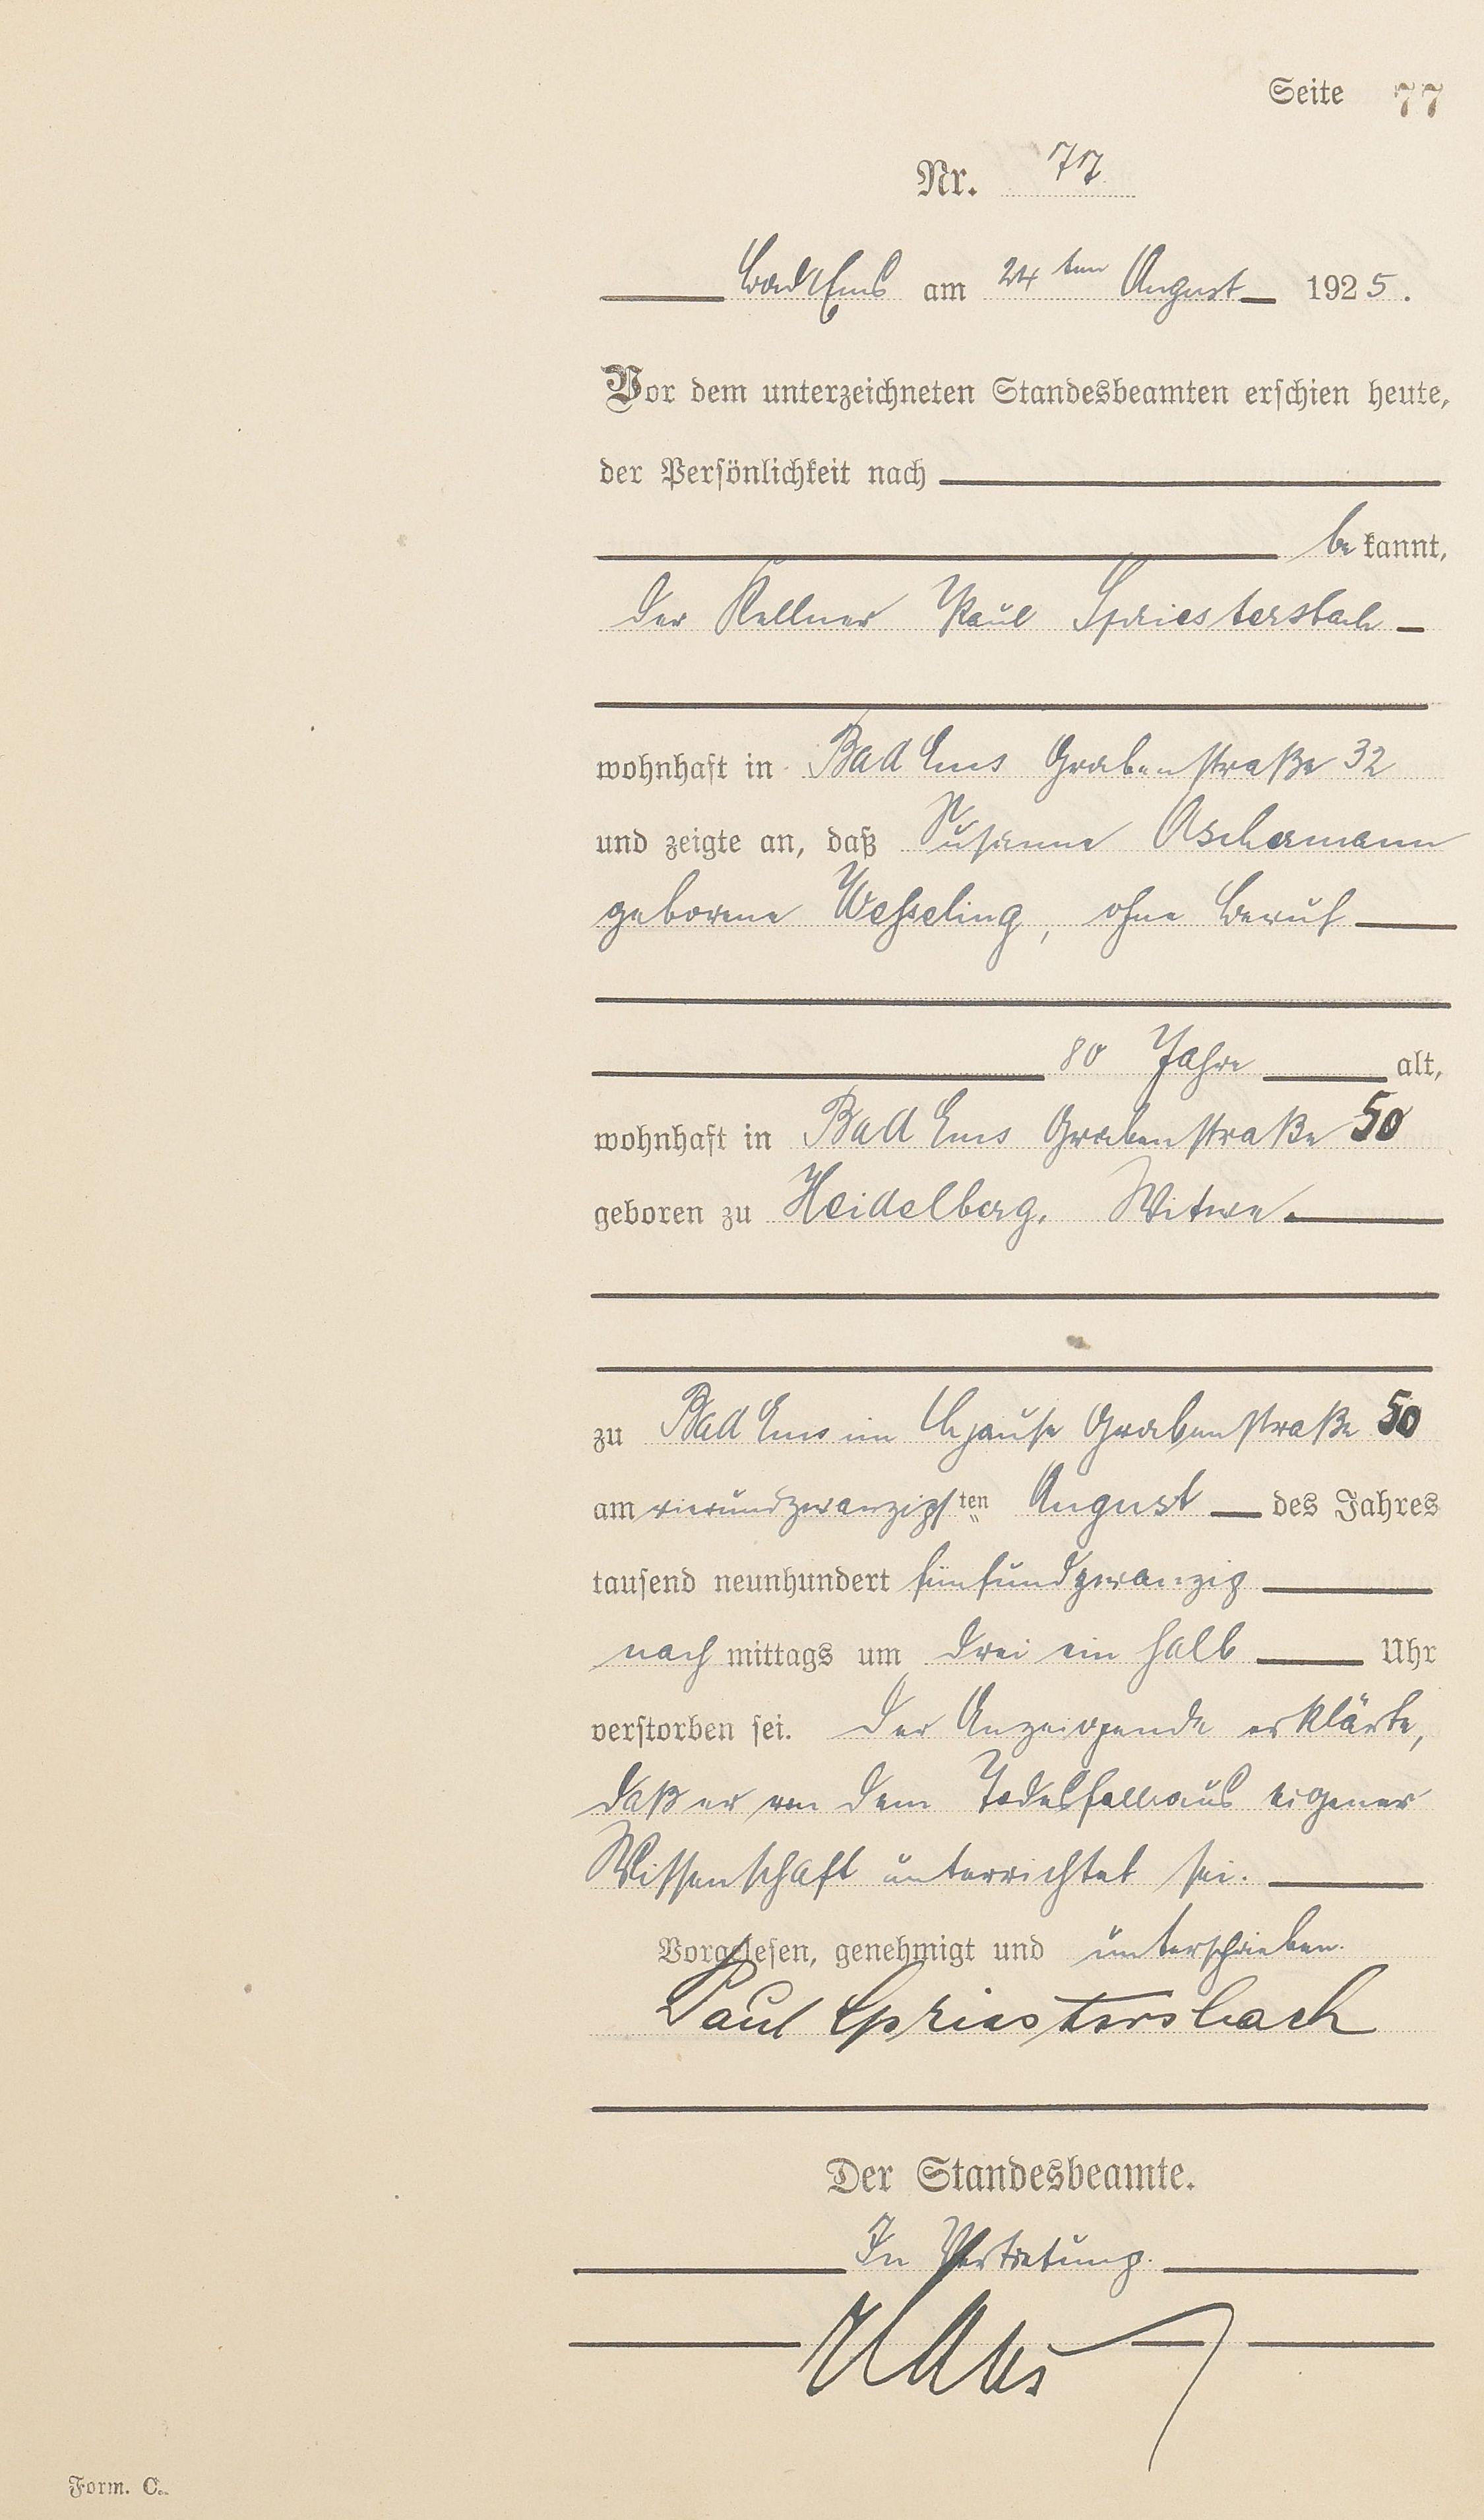 Seite 77
Nr. 77
Bad Ems am 24ten August 1925.
Vor dem unterzeichneten Standesbeamten erschien heute,
der Persönlichkeit nach
bekannt,
der Kellner Paul Spriestersbach
wohnhaft in Bad Ems Grabenstraße 32
und zeigte an, daß Susanne Aschermann
geborene Wesseling, ohne Beruf
80 Jahre alt,
wohnhaft in Bad Ems Grabenstraße 50
geboren zu Heidelberg. Witwe.
zu Bad Ems im Hause Grabenstraße 50
am vierundzwanzigsten August des Jahres
tausend neunhundert fünfundzwanzig
nachmittags um drei ein halb Uhr
verstorben sei. Der Anzeigende erklärte,
daß er von dem Todesfall aus eigener
Wissenschaft unterrichtet sei.
Vorgelesen, genehmigt und unterschrieben.
Paul Spriestersbach
Der Standesbeamte.
In Vertretung.
Form. C.